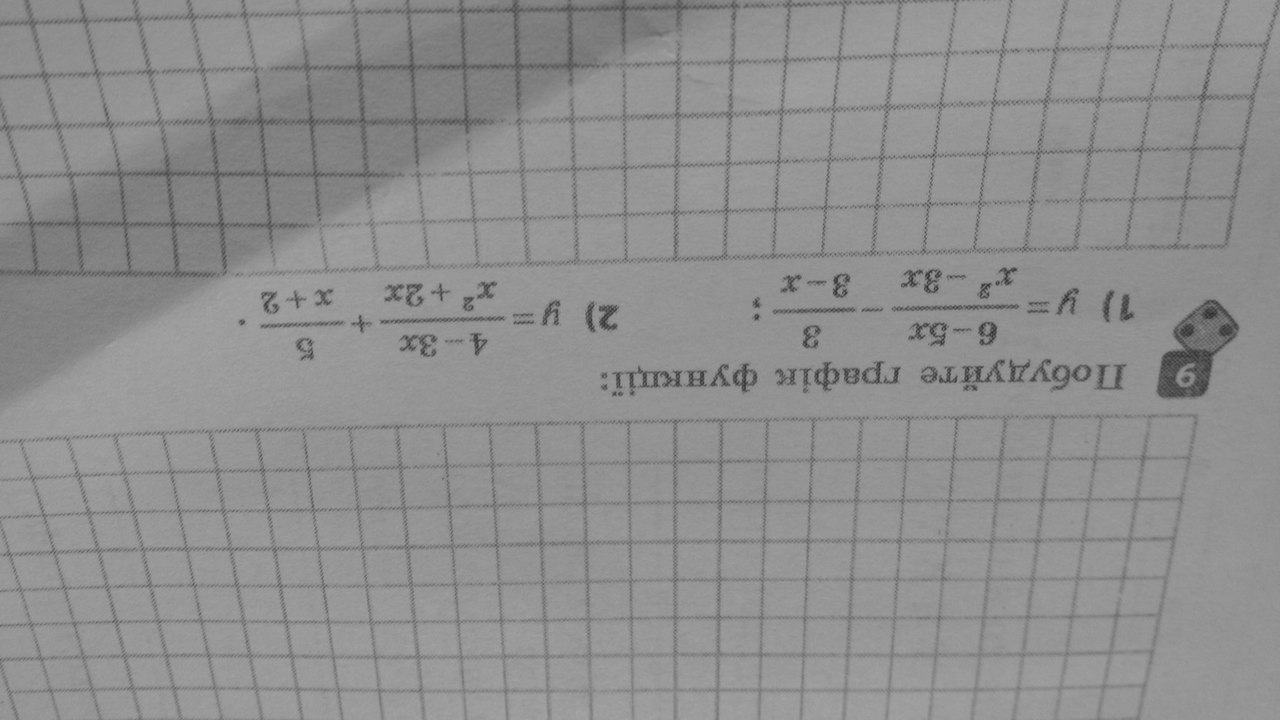 6 Побудуйте графік функції:
1) y = \frac{6-5x}{x^2-3x} - \frac{3}{3-x}; 2) y = \frac{4-3x}{x^2+2x} + \frac{5}{x+2}.